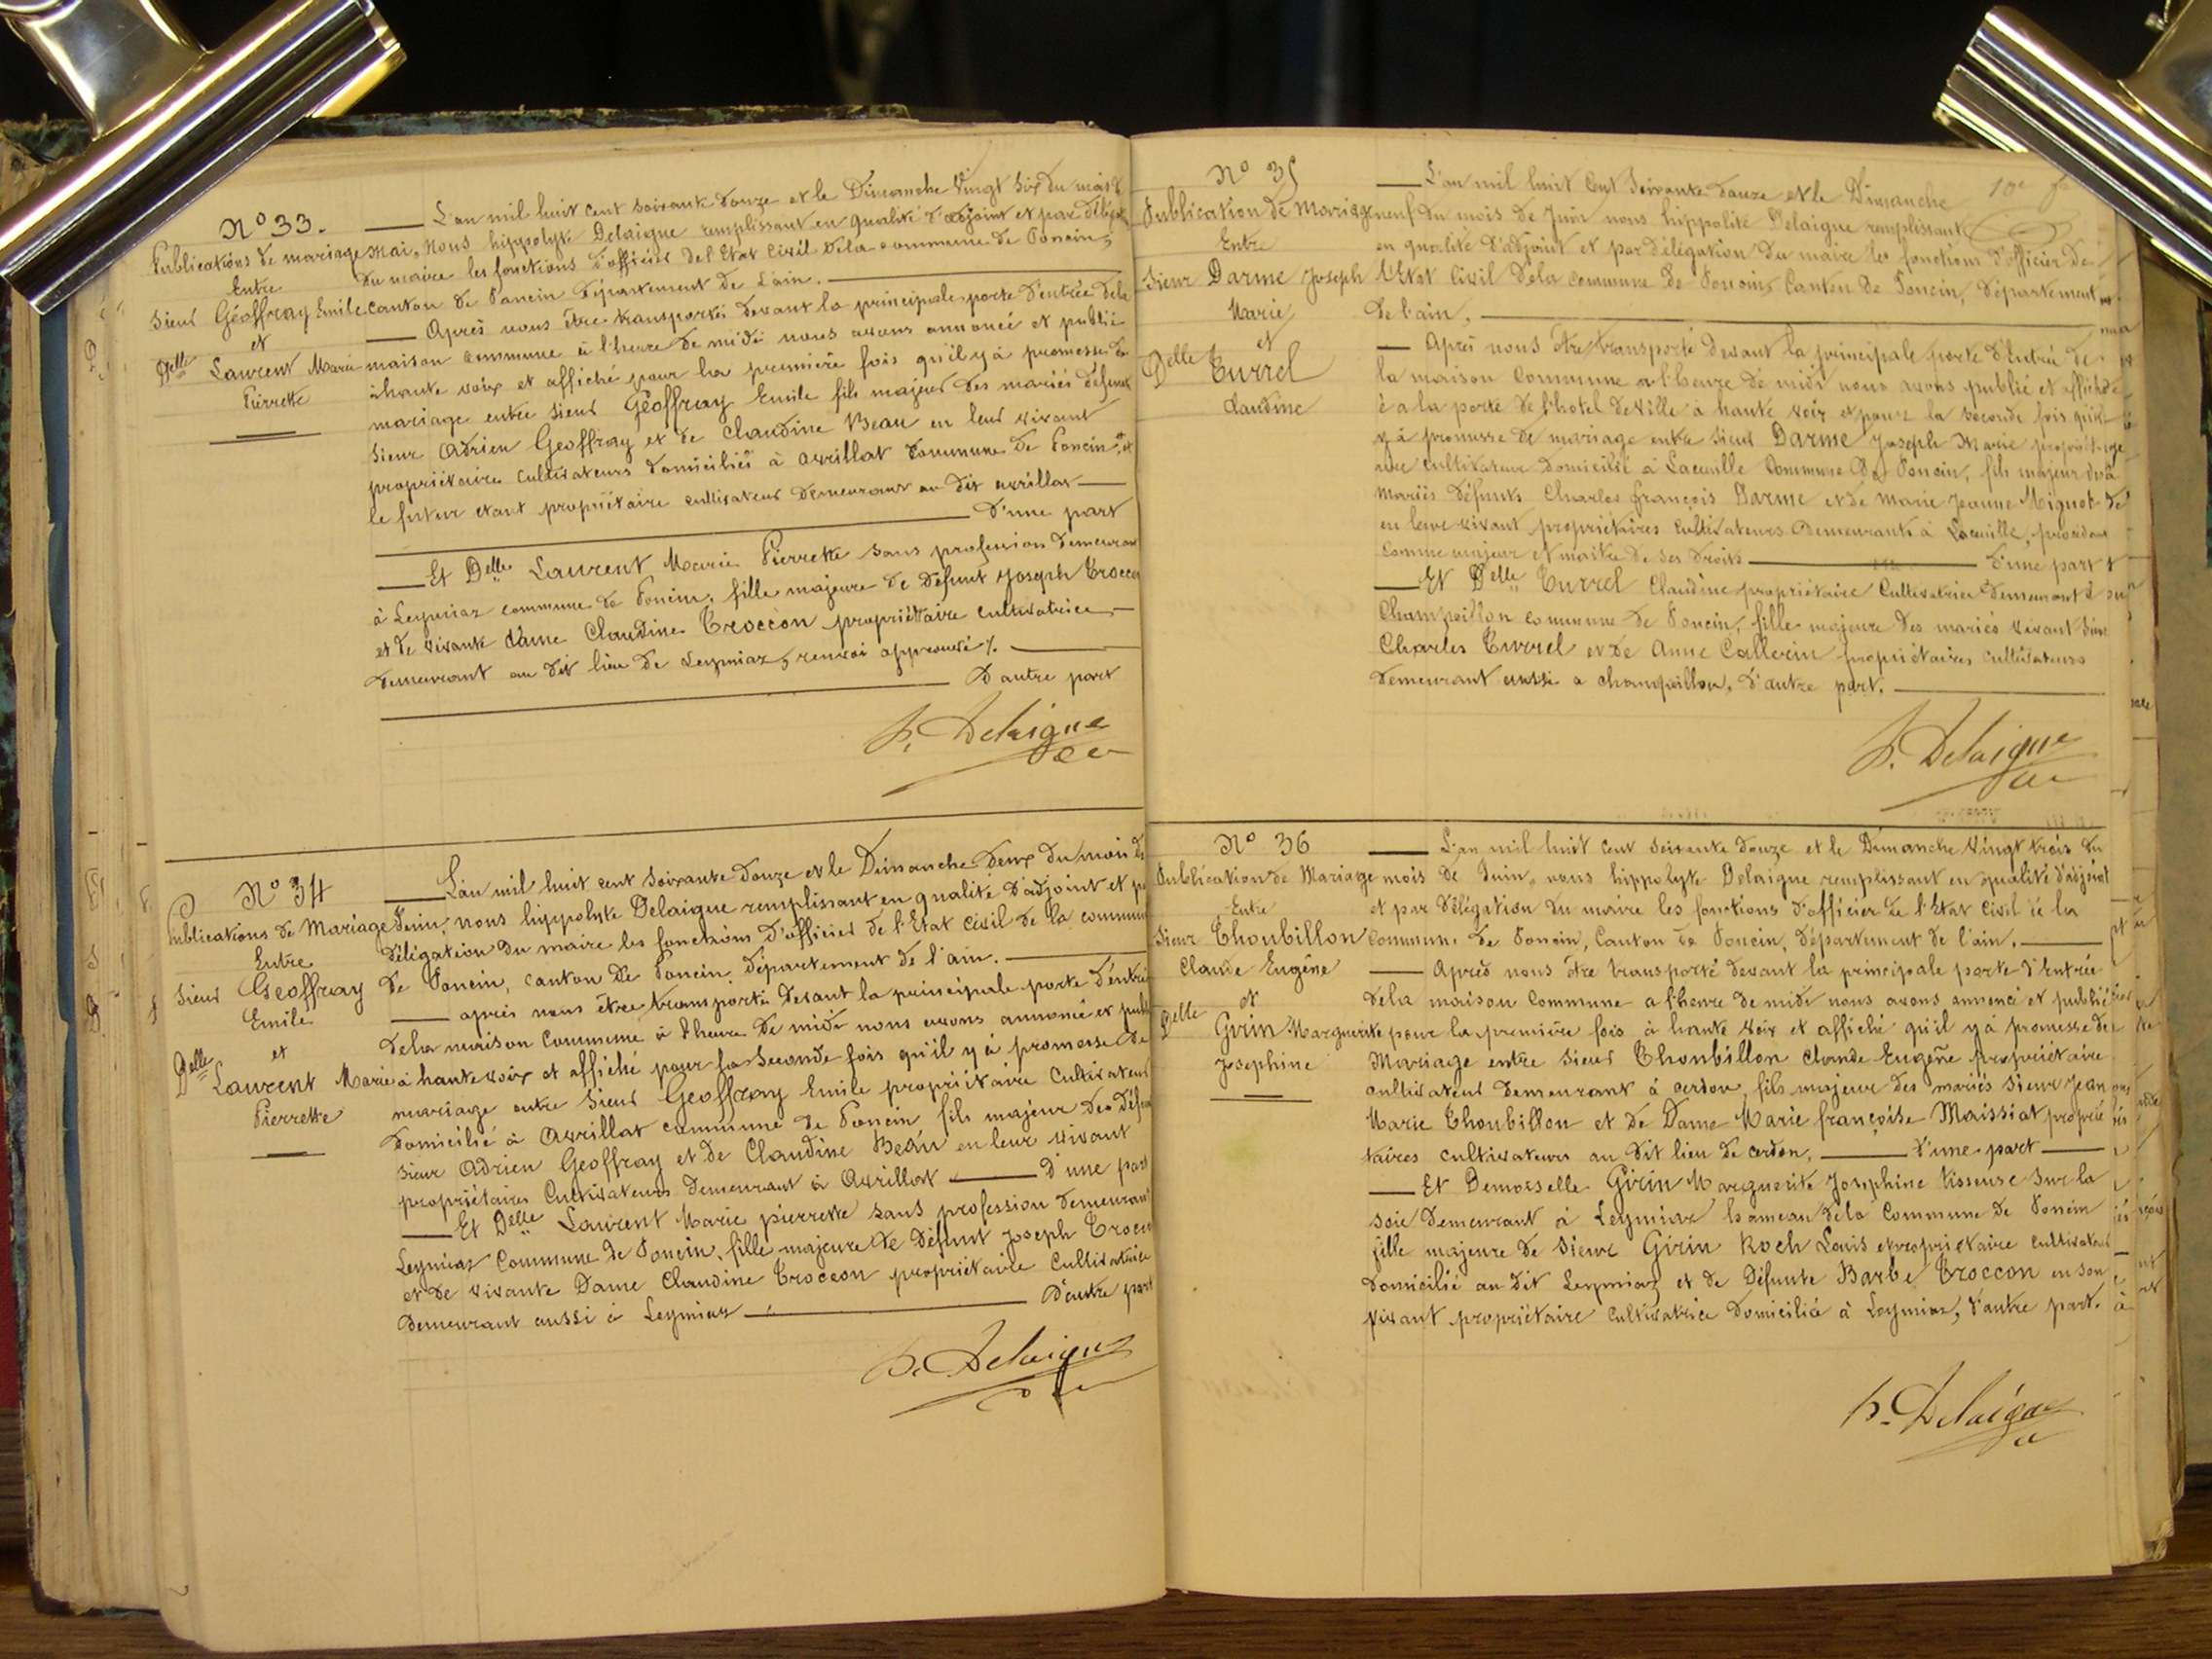 N° 33.
Publications de mariage
Entre
Sieur Géoffray Emile
et
Delle Laurent Marie
Pierrette
L'an mil huit cent soixante douze et le Dimanche Vingt six du mois de
mai, nous hippolyte Delaigue remplissant en qualité d'adjoint et par délégation
du maire les fonctions d'officier de l'Etat Civil de la commune de Poncin,
canton de Poncin département de L'ain.
Après nous être transportés devant la principale porte d'entrée de la
maison commune à l'heure de midi nous avons annoncé et publié
à haute voix et affiché pour la première fois qu'il y à promesse de
mariage entre sieur Géoffray Emile fils majeur des mariés défunts
sieur Adrien Geoffray et de Claudine Beau en leur vivant
propriétaires cultivateurs domiciliés à avrillat Commune de Poncin, et
le futur etant propriétaire cultivateur demeurant au dit avrillat
d'une part
Et Delle Laurent Marie Pierrette sans profession demeurant
à Leymiaz commune de Poncin, fille majeure de défunt Joseph Troccon
et de vivante dame Claudine Troccon propriétaire cultivatrice
demeurant au dit lieu de Leymiaz, renvoi approuvé /.
D'autre part
h. Delaigue
N° 34
Publications de Mariage
Entre
Sieur Geoffray
Emile
et
Delle Laurent Marie
Pierrette
L'an mil huit cent soixante douze et le Dimanche deux du mois de
Juin, nous hippolyte Delaigue remplissant en qualité d'adjoint et par
délégation du maire les fonctions d'officier de l'Etat Civil de la commune
de Poncin, canton de Poncin département de l'ain.
après nous être transporté devant la principale porte d'entrée
de la maison Commune à l'heure de midi nous avons annoncé et publié
à haute voix et affiché pour la Seconde fois qu'il y à promesse de
mariage entre Sieur Geoffray Emile propriétaire Cultivateur
domicilié à Avrillat commune de Poncin fils majeur des défunts
sieur Adrien Geoffray et de Claudine Beau en leur vivant
propriétaires Cultivateurs demeurant à Avrillat D'une part
Et Delle Laurent Marie pierrette sans profession demeurant
Leymiaz Commune de Poncin, fille majeure de Défunt Joseph Troccon
et de vivante Dame Claudine Troccon propriétaire Cultivatrice
demeurant aussi à Leymiaz D'autre part
h. Delaigue
N° 35
Publication de Mariage
Entre
Sieur Darme Joseph
Marie
et
Delle Turrel
Claudine
10e
L'an mil huit Cent Soixante douze et le Dimanche
neuf du mois de Juin nous hippolite Delaigue remplissant
en qualité d'adjoint et par délégation du maire les fonctions d'officier de
l'Etat Civil de la commune de Poncin, Canton de Poncin, Département
de l'ain.
Après nous être transporté devant la principale porte d'Entrée de
la maison Commune a l'heure de midi nous avons publié et affiché
à la porte de l'hotel de Ville à haute voix et pour la seconde fois qu'il
y à promesse de mariage entre sieur Darme Joseph Marie propriét
aire cultivateur domicilié à Lacuille Commune de Poncin, fils majeur des
mariés défunts Charles françois Darme et de Marie Jeanne Mignot
en leur vivant propriétaires Cultivateurs Demeurants à Lacuille, procédant
comme majeur et maitre de ses droits D'une part
Et Delle Turrel Claudine propriétaire Cultivatrice demeurant à
Champeillon commune de Poncin, fille majeure des mariés vivant sieur
Charles Turrel et de Anne Callerin propriétaires cultivateurs
demeurant aussi a champeillon, d'autre part.
h. Delaigue
N° 36
Publication de Mariage
Entre
Sieur Thoubillon
Claude Eugéne
et
Delle Girin Marguerite
Josephine
L'an mil huit cent soixante douze et le Dimanche Vingt trois du
mois de Juin, nous hippolyte Delaigue remplissant en qualité d'adjoint
et par délégation du maire les fonctions d'officier de l'Etat Civil de la
Commune de Poncin, Canton de Poncin, Département de l'ain.
Après nous être transporté devant la principale porte d'Entrée
de la maison Commune a l'heure de midi nous avons annoncé et publié
pour la première fois à haute voix et affiché qu'il y à promesse de
Mariage entre sieur Thoubillon Claude Eugéne propriétaire
cultivateur demeurant à cerdon, fils majeur des mariés sieur Jean
Marie Thoubillon et de Dame Marie françoise Maissiat proprié
taires cultivateurs au dit lieu de cerdon, d'une part
Et Demoiselle Girin Marguerite Josephine tisseuse sur la
soie demeurant à Leymiaz hameau de la Commune de Poncin
fille majeure de sieur Girin Roch Louis et proprietaire cultivateur
domicilié au dit Leymiaz et de défunte Barbe Troccon en son
vivant propriétaire cultivatrice domiciliée à Leymiaz, d'autre part.
h. Delaigue